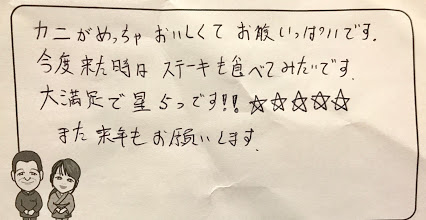 カニがめっちゃおいしくてお腹いっぱいです.
今度来た時はステーキも食べてみたいです.
大満足で星5つです!!☆☆☆☆☆
また来年もお願いします.